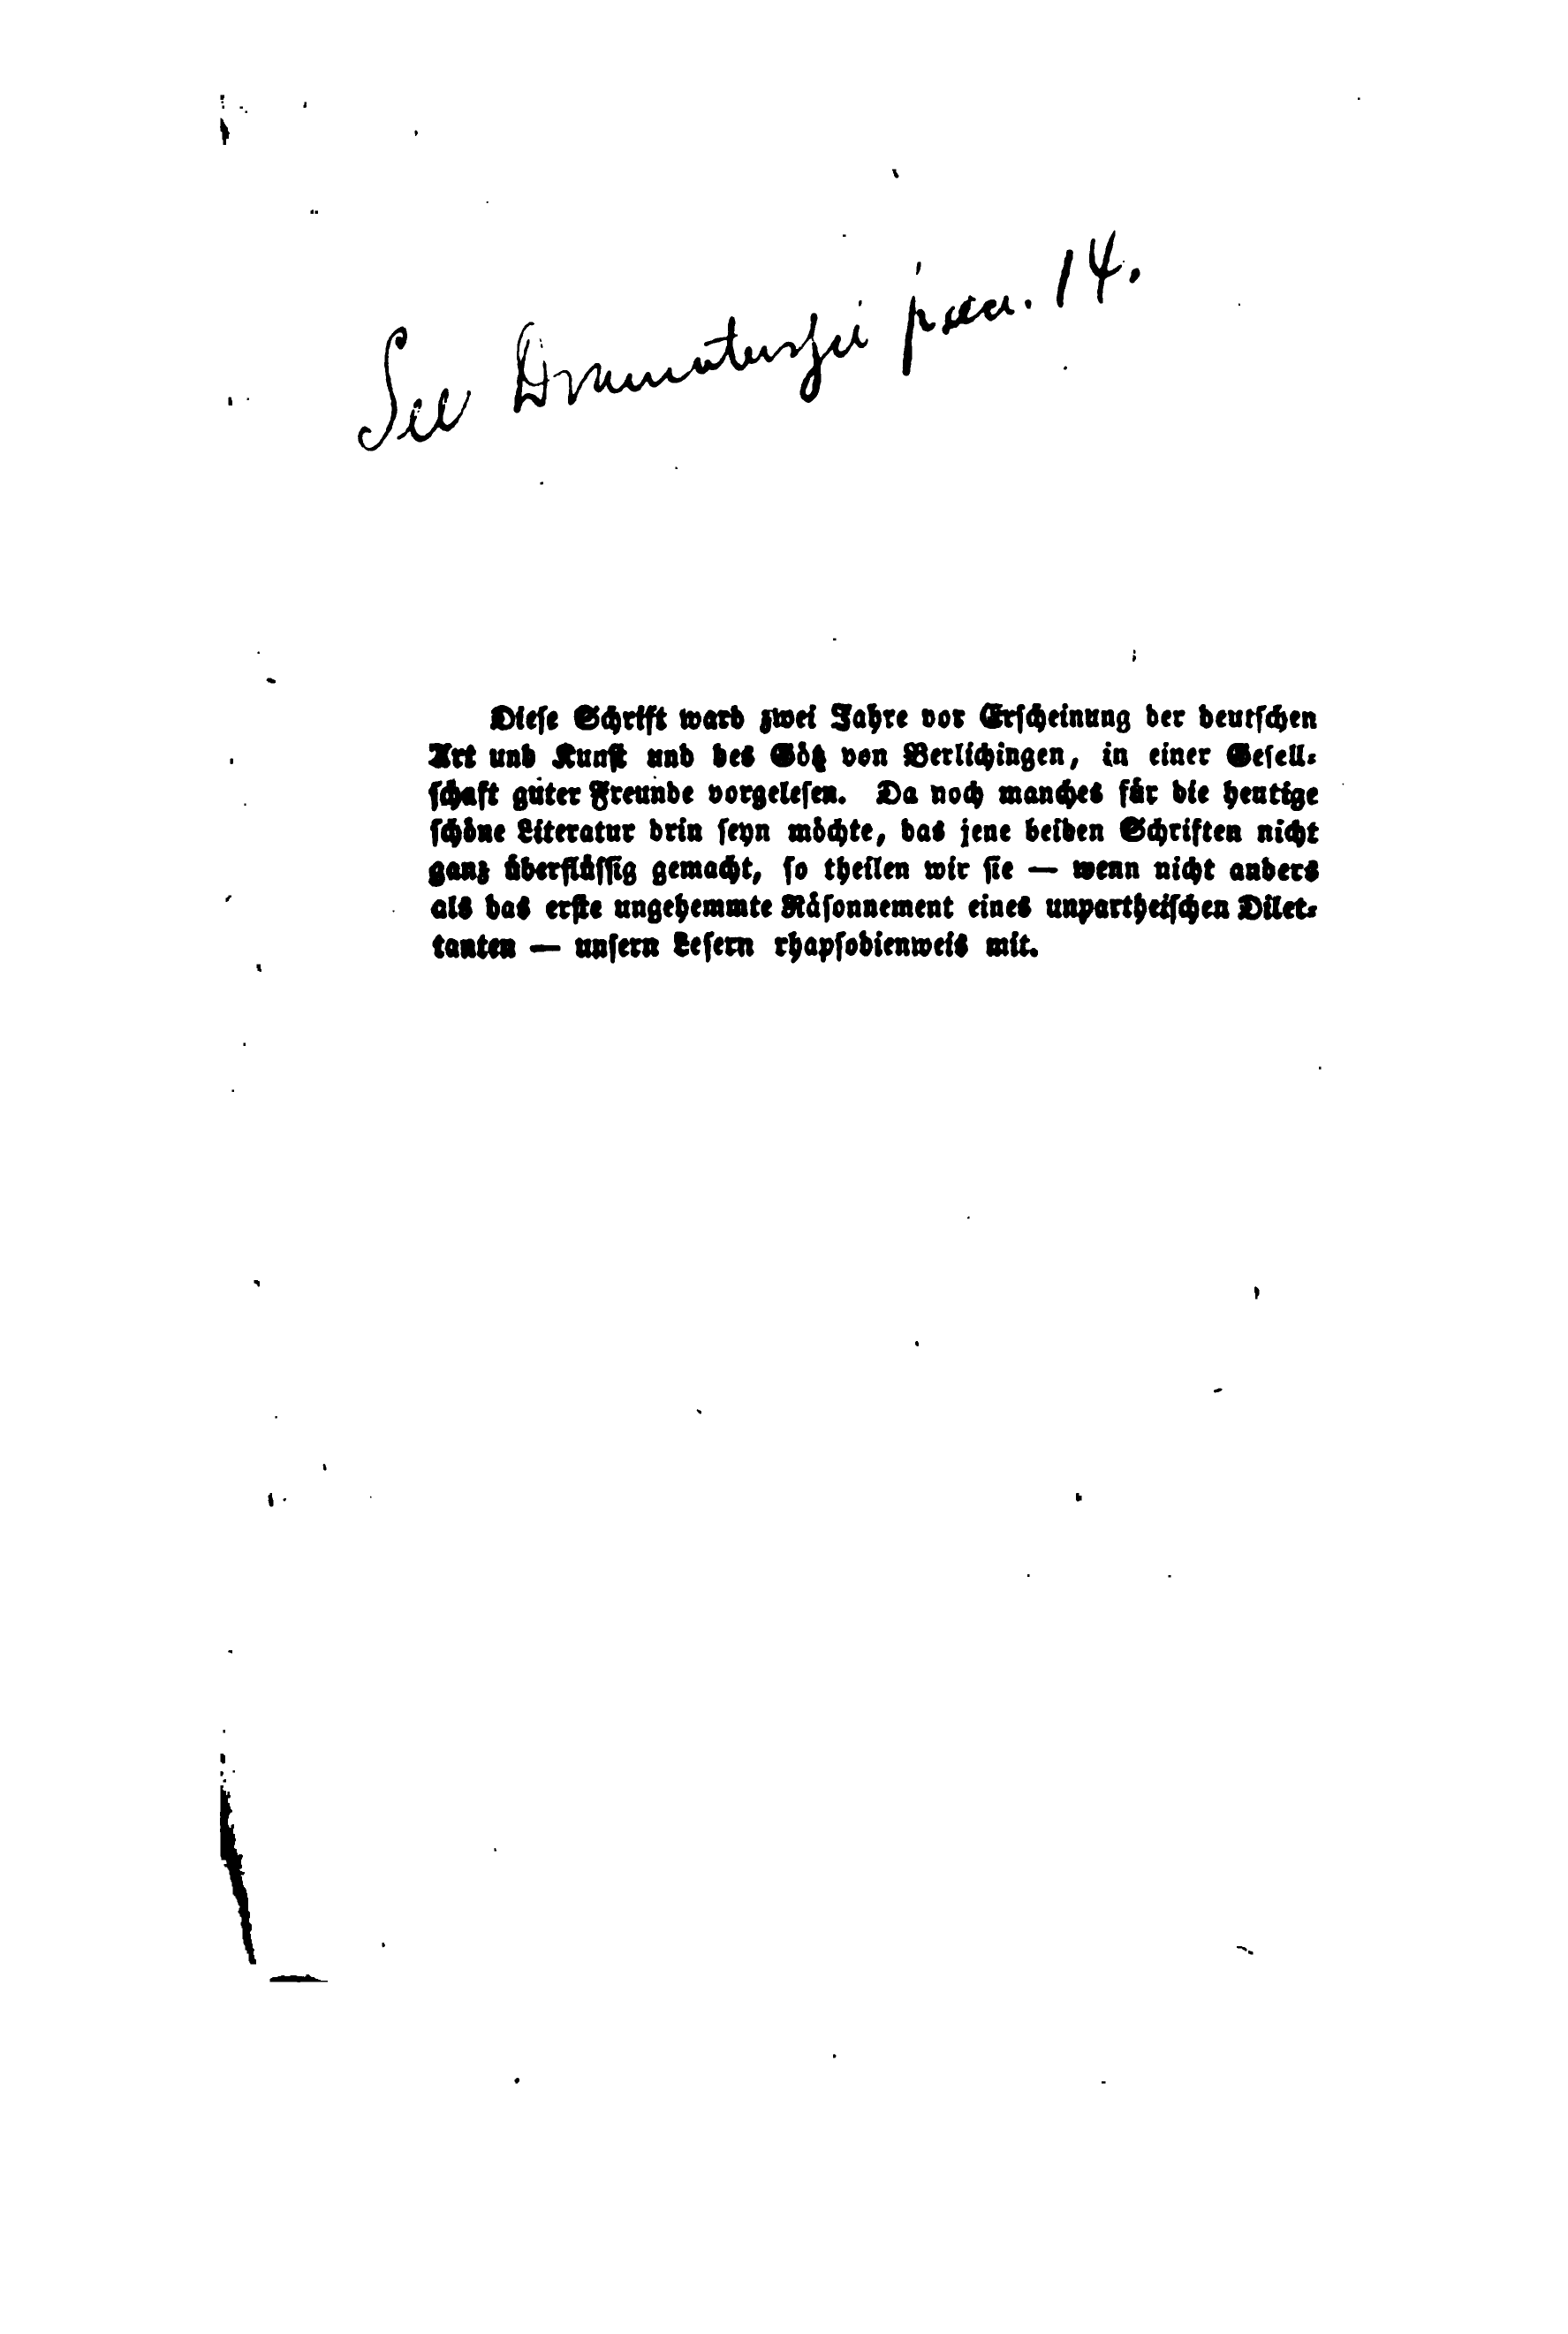 See Dramaturgei para. 14.
Dieſe Schrift ward zwei Jahre vor Erſcheinung der deutſchen
Art und Kunſt und des Götz von Berlichingen, in einer Geſell⸗
ſchaft guter Freunde vorgeleſen. Da noch manches für die heutige
ſchöne Literatur drin ſeyn möchte, das jene beiden Schriften nicht
ganz überflüſſig gemacht, ſo theilen wir ſie — wenn nicht anders
als das erſte ungehemmte Räſonnement eines unpartheiſchen Dilet⸗
tanten — unſern Leſern rhapſodienweis mit.